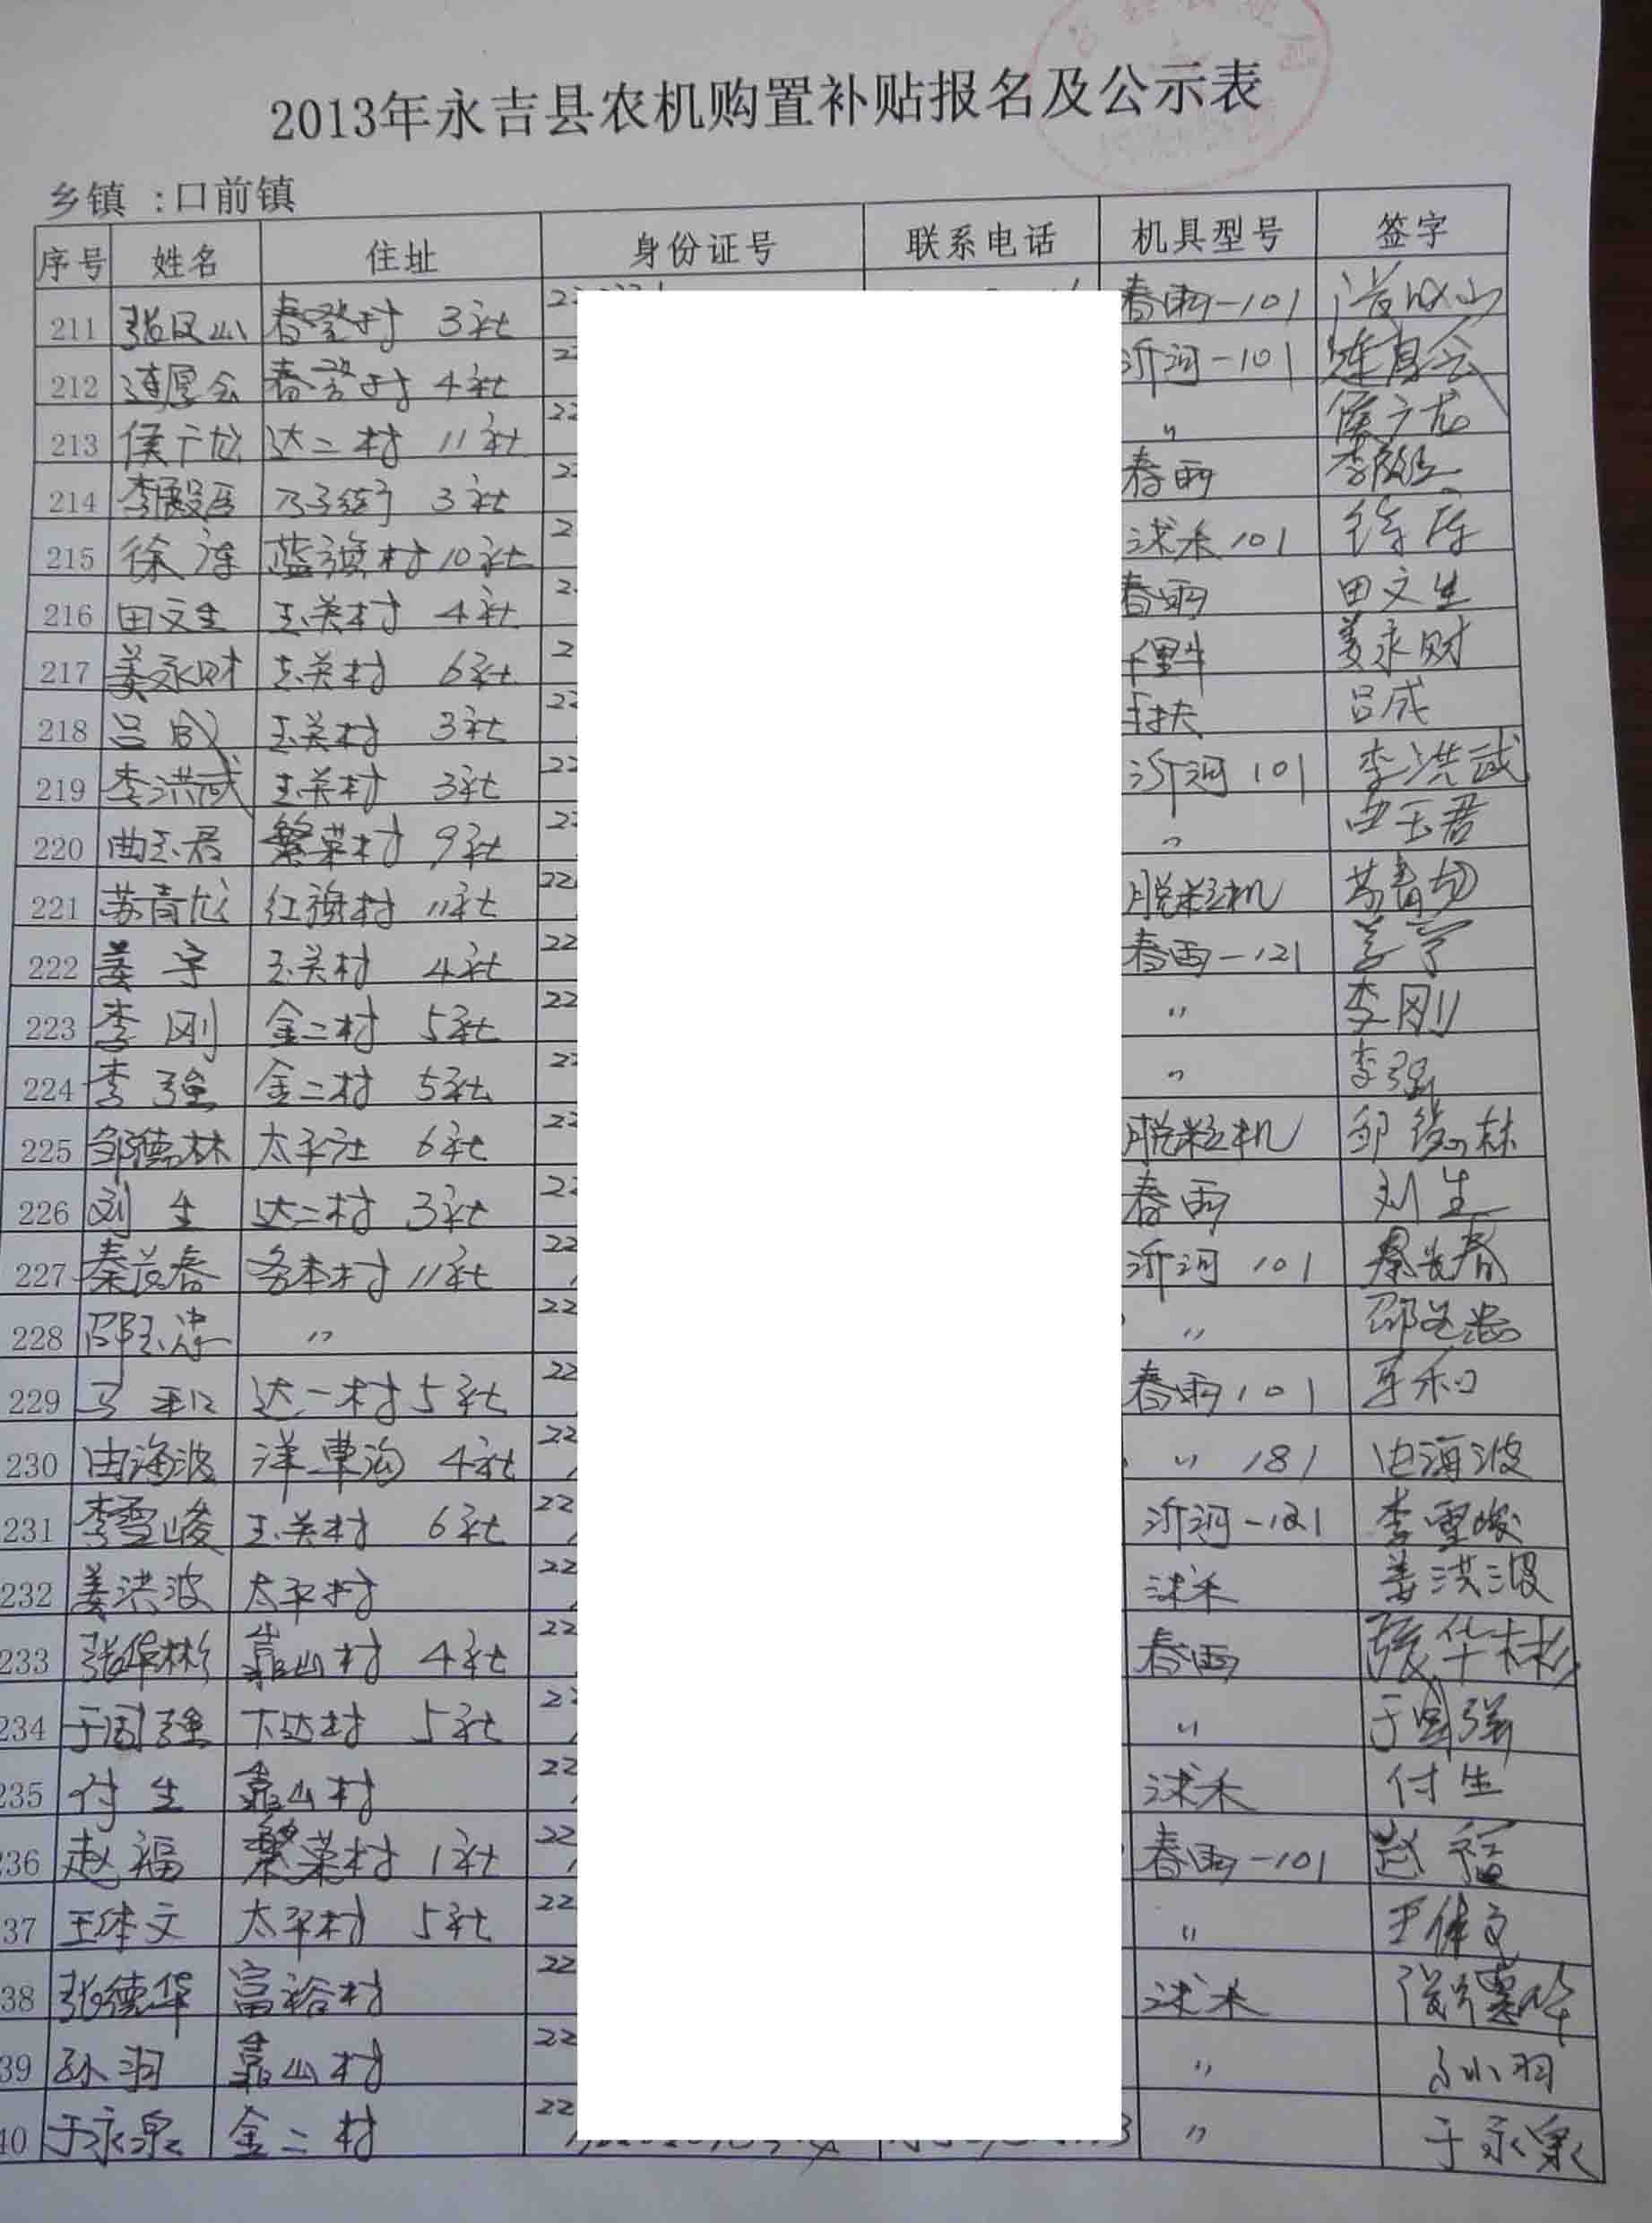 2013年永吉县农机购置补贴报名及公示表
乡镇 :口前镇
序号 姓名 住址 身份证号 联系电话 机具型号 签字
211 张凤山 春登村 3社 春雨-101
212 连厚会 春登村 4社 22 沂河-101 连厚会
213 侯广龙 达二村 11社 22 〃 侯广龙
214 李殿臣 3社 22 春雨 李殿臣
215 徐 蓝旗村 10社 2 沭禾101 徐
216 田文生 玉关村 4社 2 春雨 田文生
217 姜永财 玉关村 6社 2 千里牛 姜永财
218 吕成 玉关村 3社 22 手扶 吕成
219 李洪武 玉关村 3社 22 沂河 101 李洪武
220 曲玉君 繁荣村 9社 22 〃 曲玉君
221 苏青龙 红旗村 11社 22 脱粒机 苏青龙
222 姜宇 玉关村 4社 22 春雨-121 姜宇
223 李刚 金二村 5社 22 〃 李刚
224 李强 金二村 5社 22 〃 李强
225 邹德林 太平社 6社 22 脱粒机 邹德林
226 刘生 达二村 3社 22 春雨 刘生
227 秦茂春 11社 22 沂河 101 春
228 邵玉忠 〃 22 〃 邵玉忠
229 马和 达一村 5社 22 春雨101 马和
230 由海波 洋草沟 4社 22 〃 181 由海波
231 李雪峻 玉关村 6社 22 沂河-121 李雪峻
232 姜洪波 太平村 22 沭禾 姜洪波
233 张华彬 靠山村 4社 22 春雨 张华彬
234 于国强 下达村 5社 22 〃 于国强
235 付生 靠山村 22 沭禾 付生
236 赵福 繁荣村 1社 22 春雨-101 赵福
37 王体文 太平村 5社 22 〃 王体文
38 张德华 富裕村 22 沭禾 张德华
39 孙羽 靠山村 22 〃 孙羽
40 于永泉 金二村 22 〃 于永泉